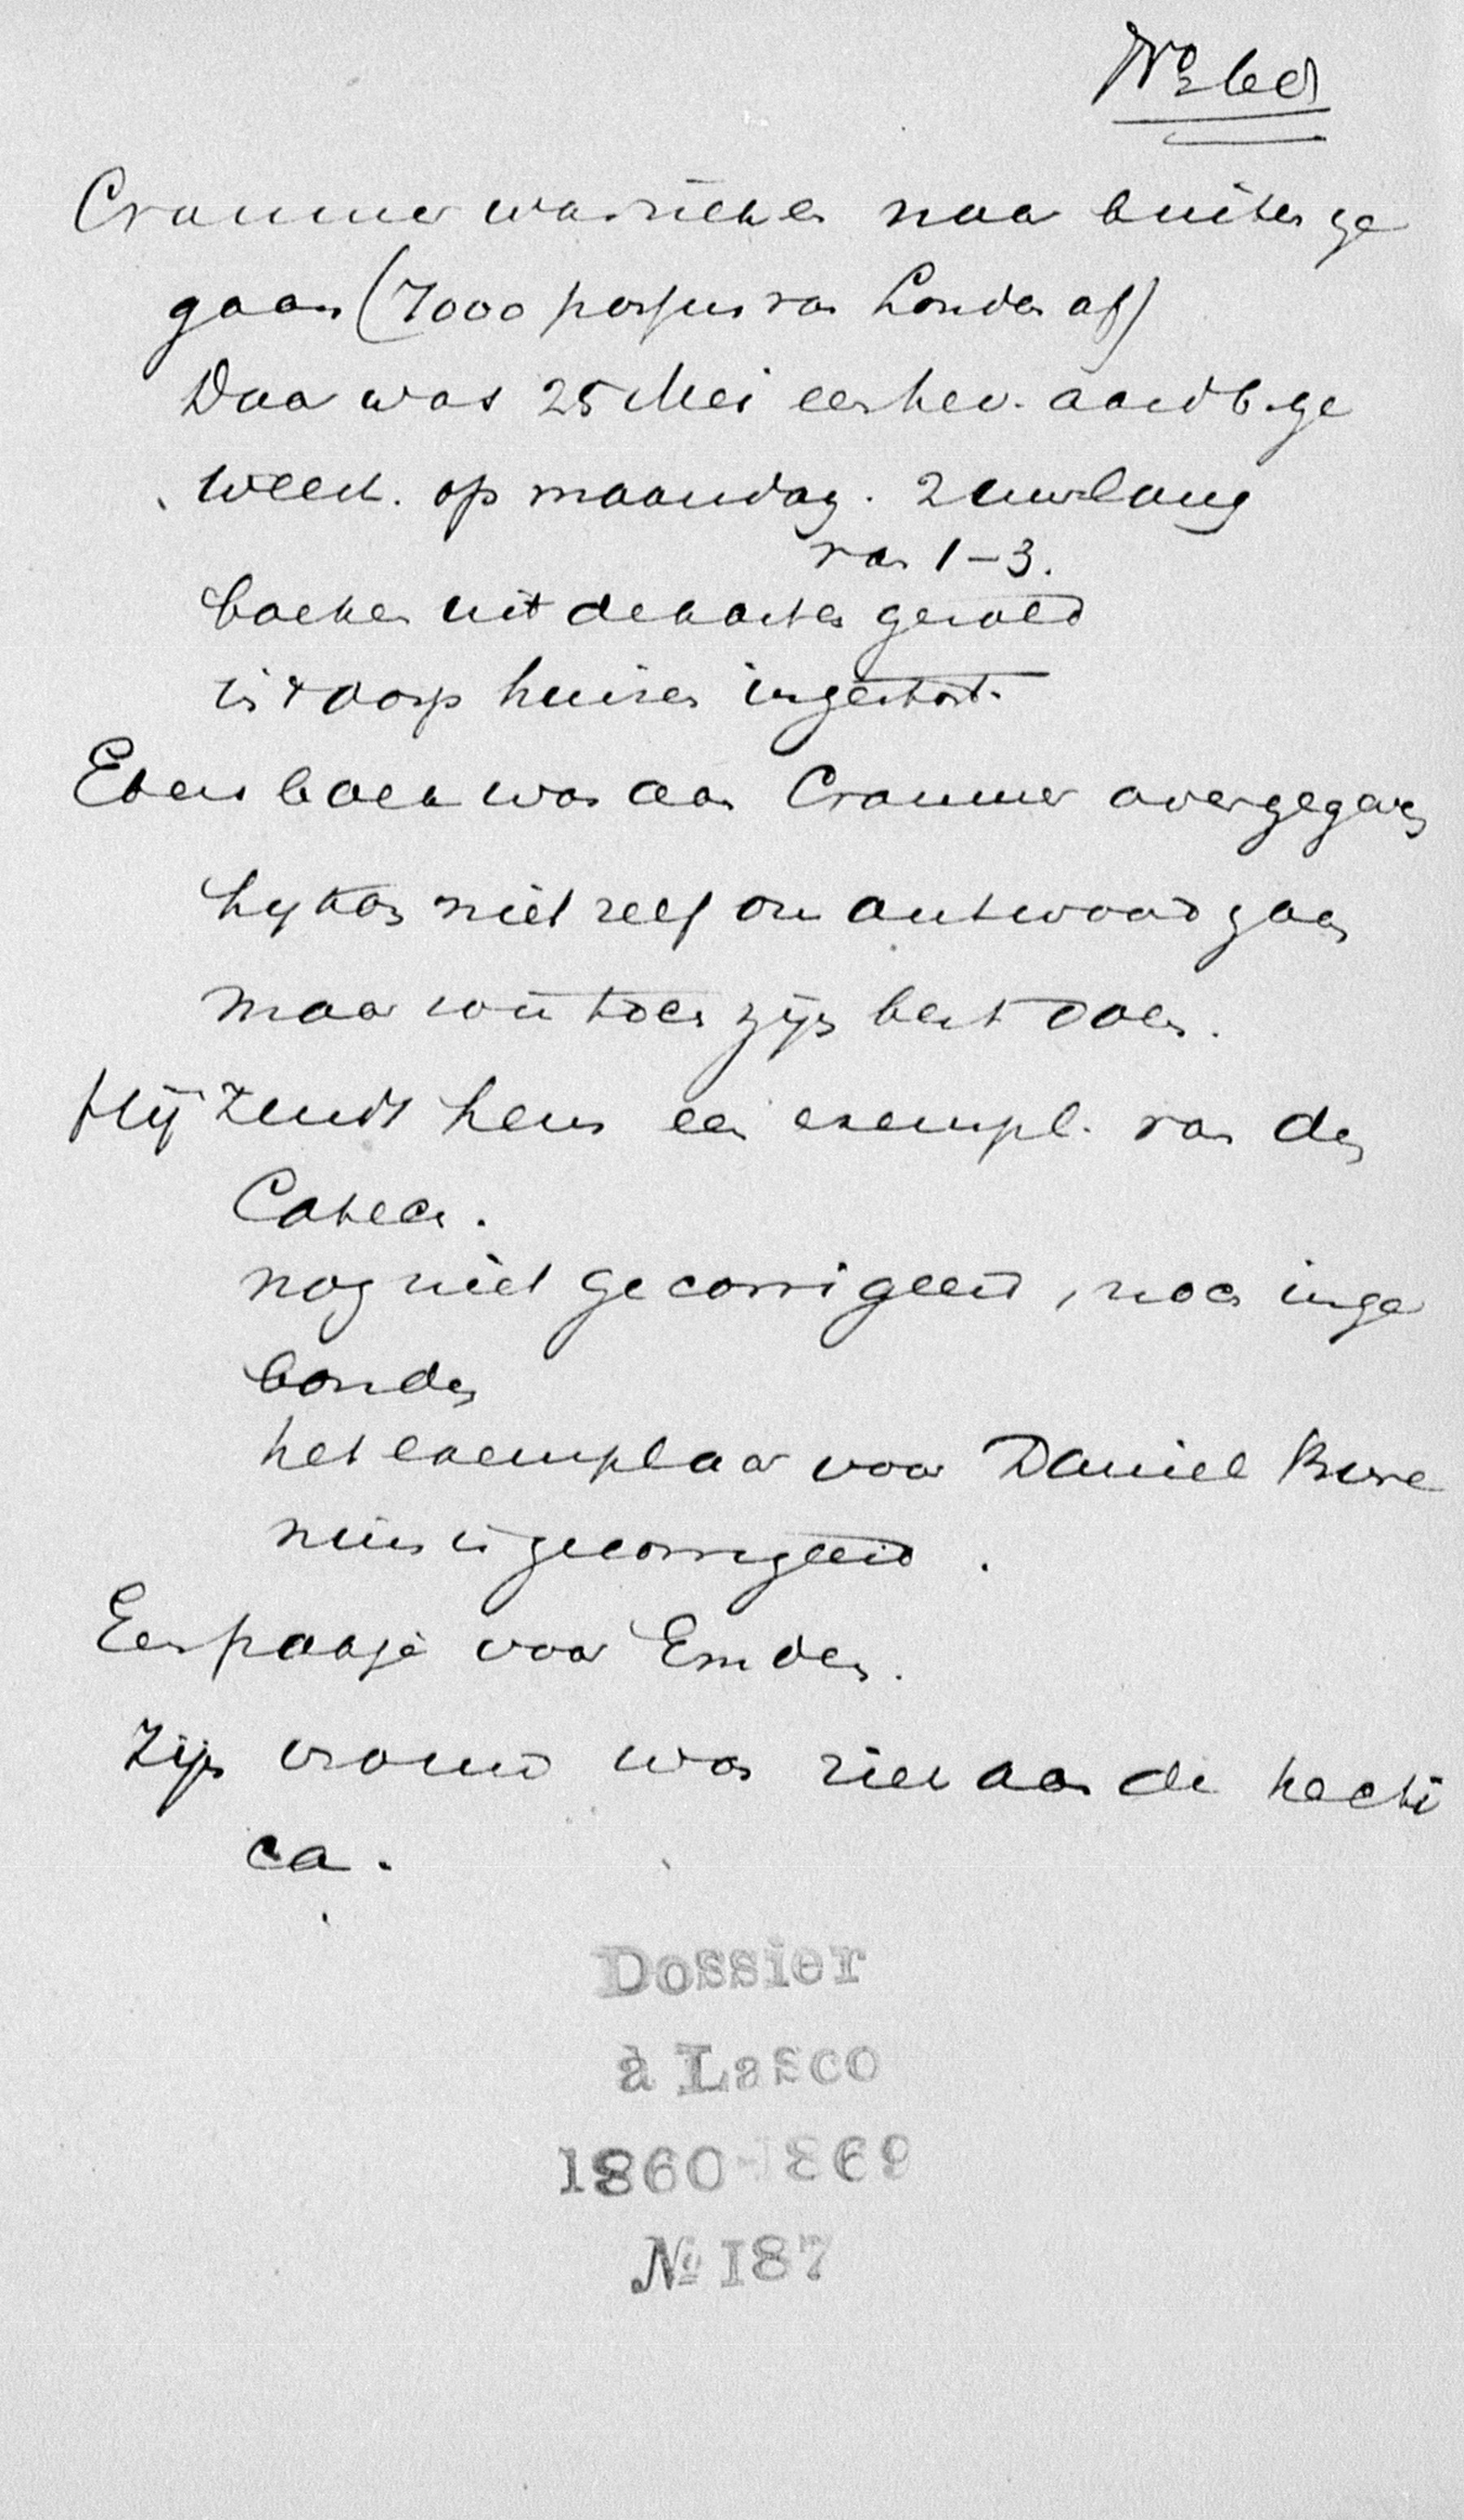 Cranmer was ziek en naar buiten ge
gaan (7000 passus van Londen af)
Daar was 25 Mei een hev. aardb. ge
weest. op maandag. 2 uur lang
van 1-3.
boeken uit de kasten gerold
in 't dorp huizen ingestort.
Edens boek was aan Cranmer overgegeven
hij kon niet zelf om antwoord gaan
maar wil toch zijn best doen.
Hij zendt hem een exempl. van den
Catech.
nog niet gecorrigeerd, noch inge
bonden
het exemplaar voor Daniel Bure
nius is gecorrigeerd.
Een paasje voor Emden.
Zijn vrouw was ziek aan de hecti
ca.
Dossier
à Lasco
1860-1869
№ 187